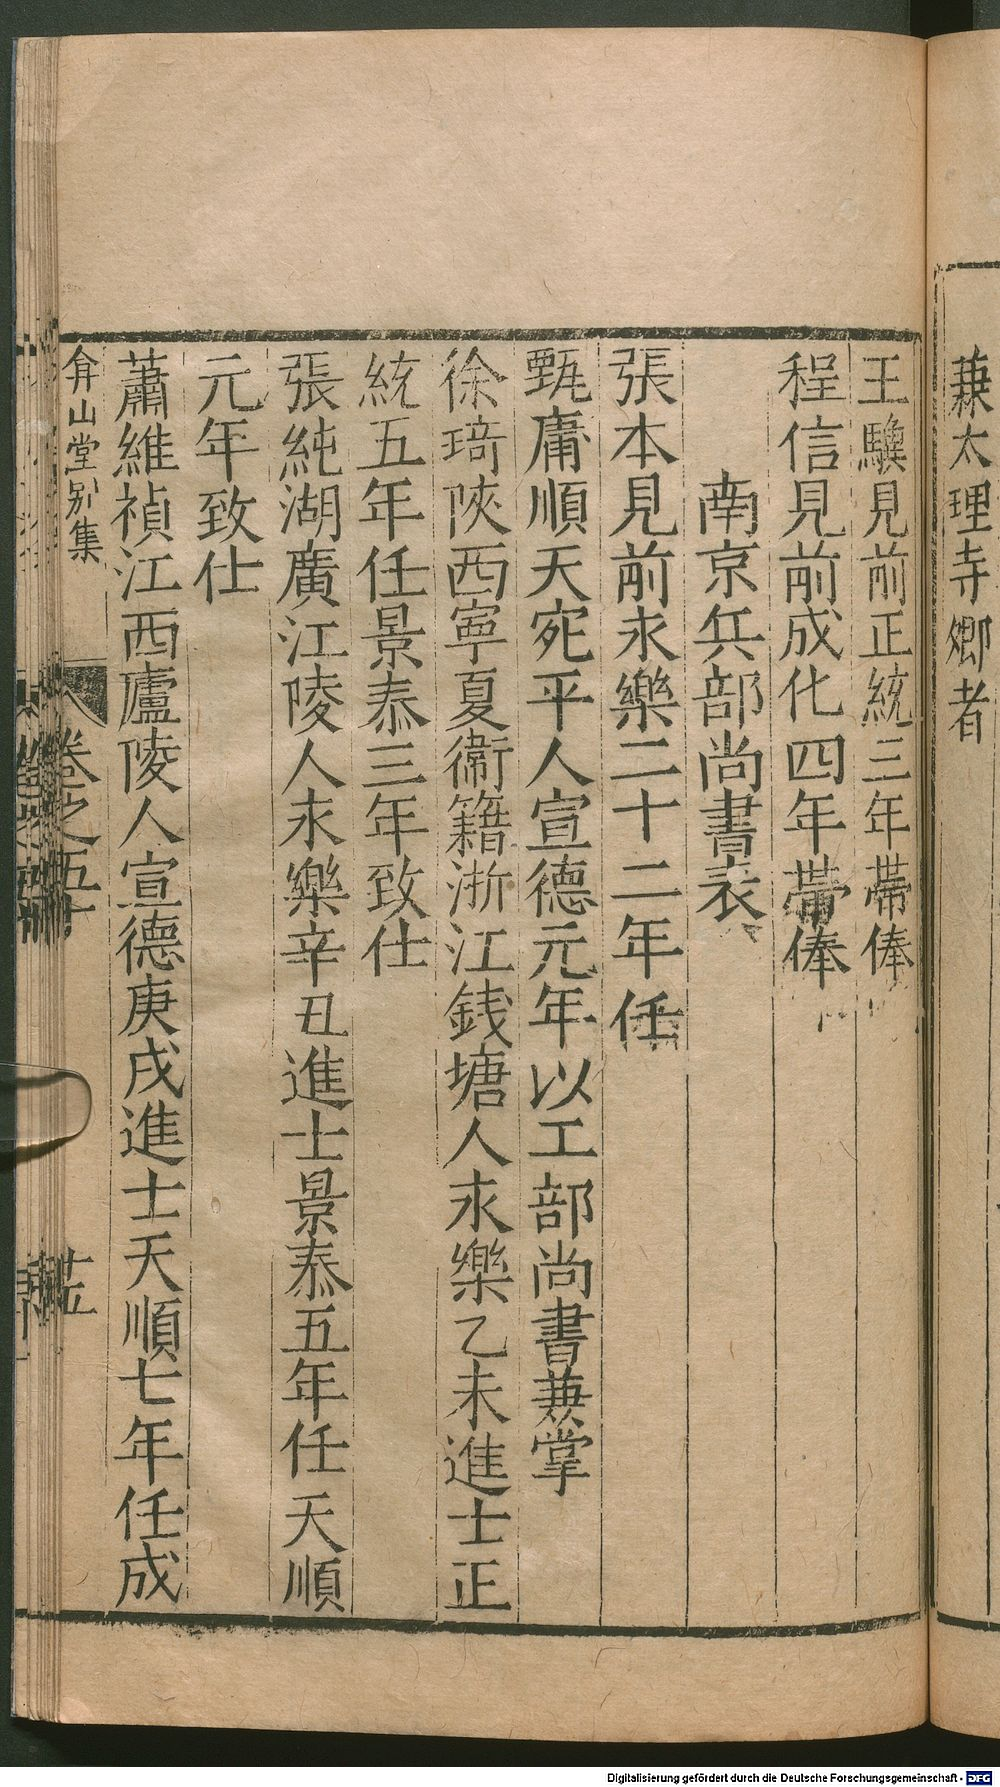 兼太理寺卿者
王驥見前正統三年帶俸
程信見前成化四年帶俸
南京兵部尚書表
張本見前永樂二十二年任
甄庸順天宛平人宣德元年以工部尚書兼掌
徐琦陝西寧夏衛籍浙江錢塘人永樂乙未進士正
統五年任景泰三年致仕
張純湖廣江陵人永樂辛丑進士景泰五年任天順
元年致仕
蕭維禎江西廬陵人宣德庚戌進士天順七年任成
弇山堂別集
卷之五十
Digitalisierung gefördert durch die Deutsche Forschungsgemeinschaft - DFG